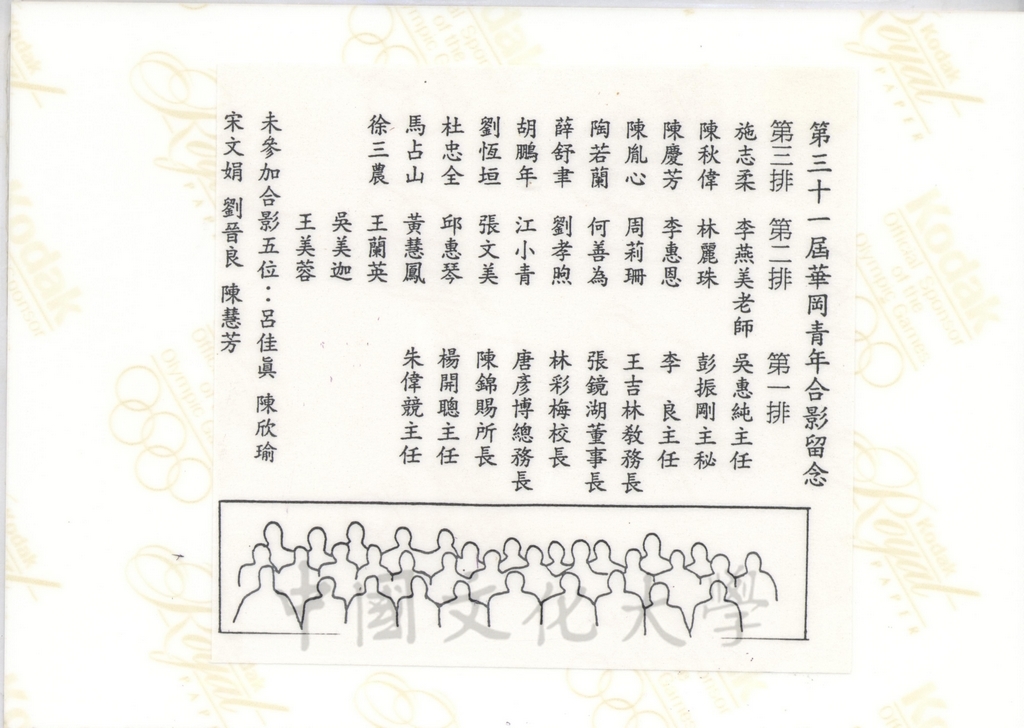 第三十一屆華岡青年合影留念
第三排 第二排 第一排
施志柔 李燕美老師 吳惠純主任
陳秋偉 林麗珠 彭振剛主秘
陳慶芳 李惠恩 李 良主任
陳胤心 周莉珊 王吉林教務長
陶若蘭 何善為 張鏡湖董事長
薛舒聿 劉孝煦 林彩梅校長
胡鵬年 江小青 唐彥博總務長
劉恆垣 張文美 陳錦賜所長
杜忠全 邱惠琴 楊開聰主任
馬占山 黃慧鳳 朱偉競主任
徐三農 王蘭英
吳美迦
王美蓉
未參加合影五位：呂佳眞 陳欣瑜
宋文娟 劉晉良 陳慧芳
中國文化大學
Kodak
Royal
PAPER
Official Sponsor
of the
Olympic Games